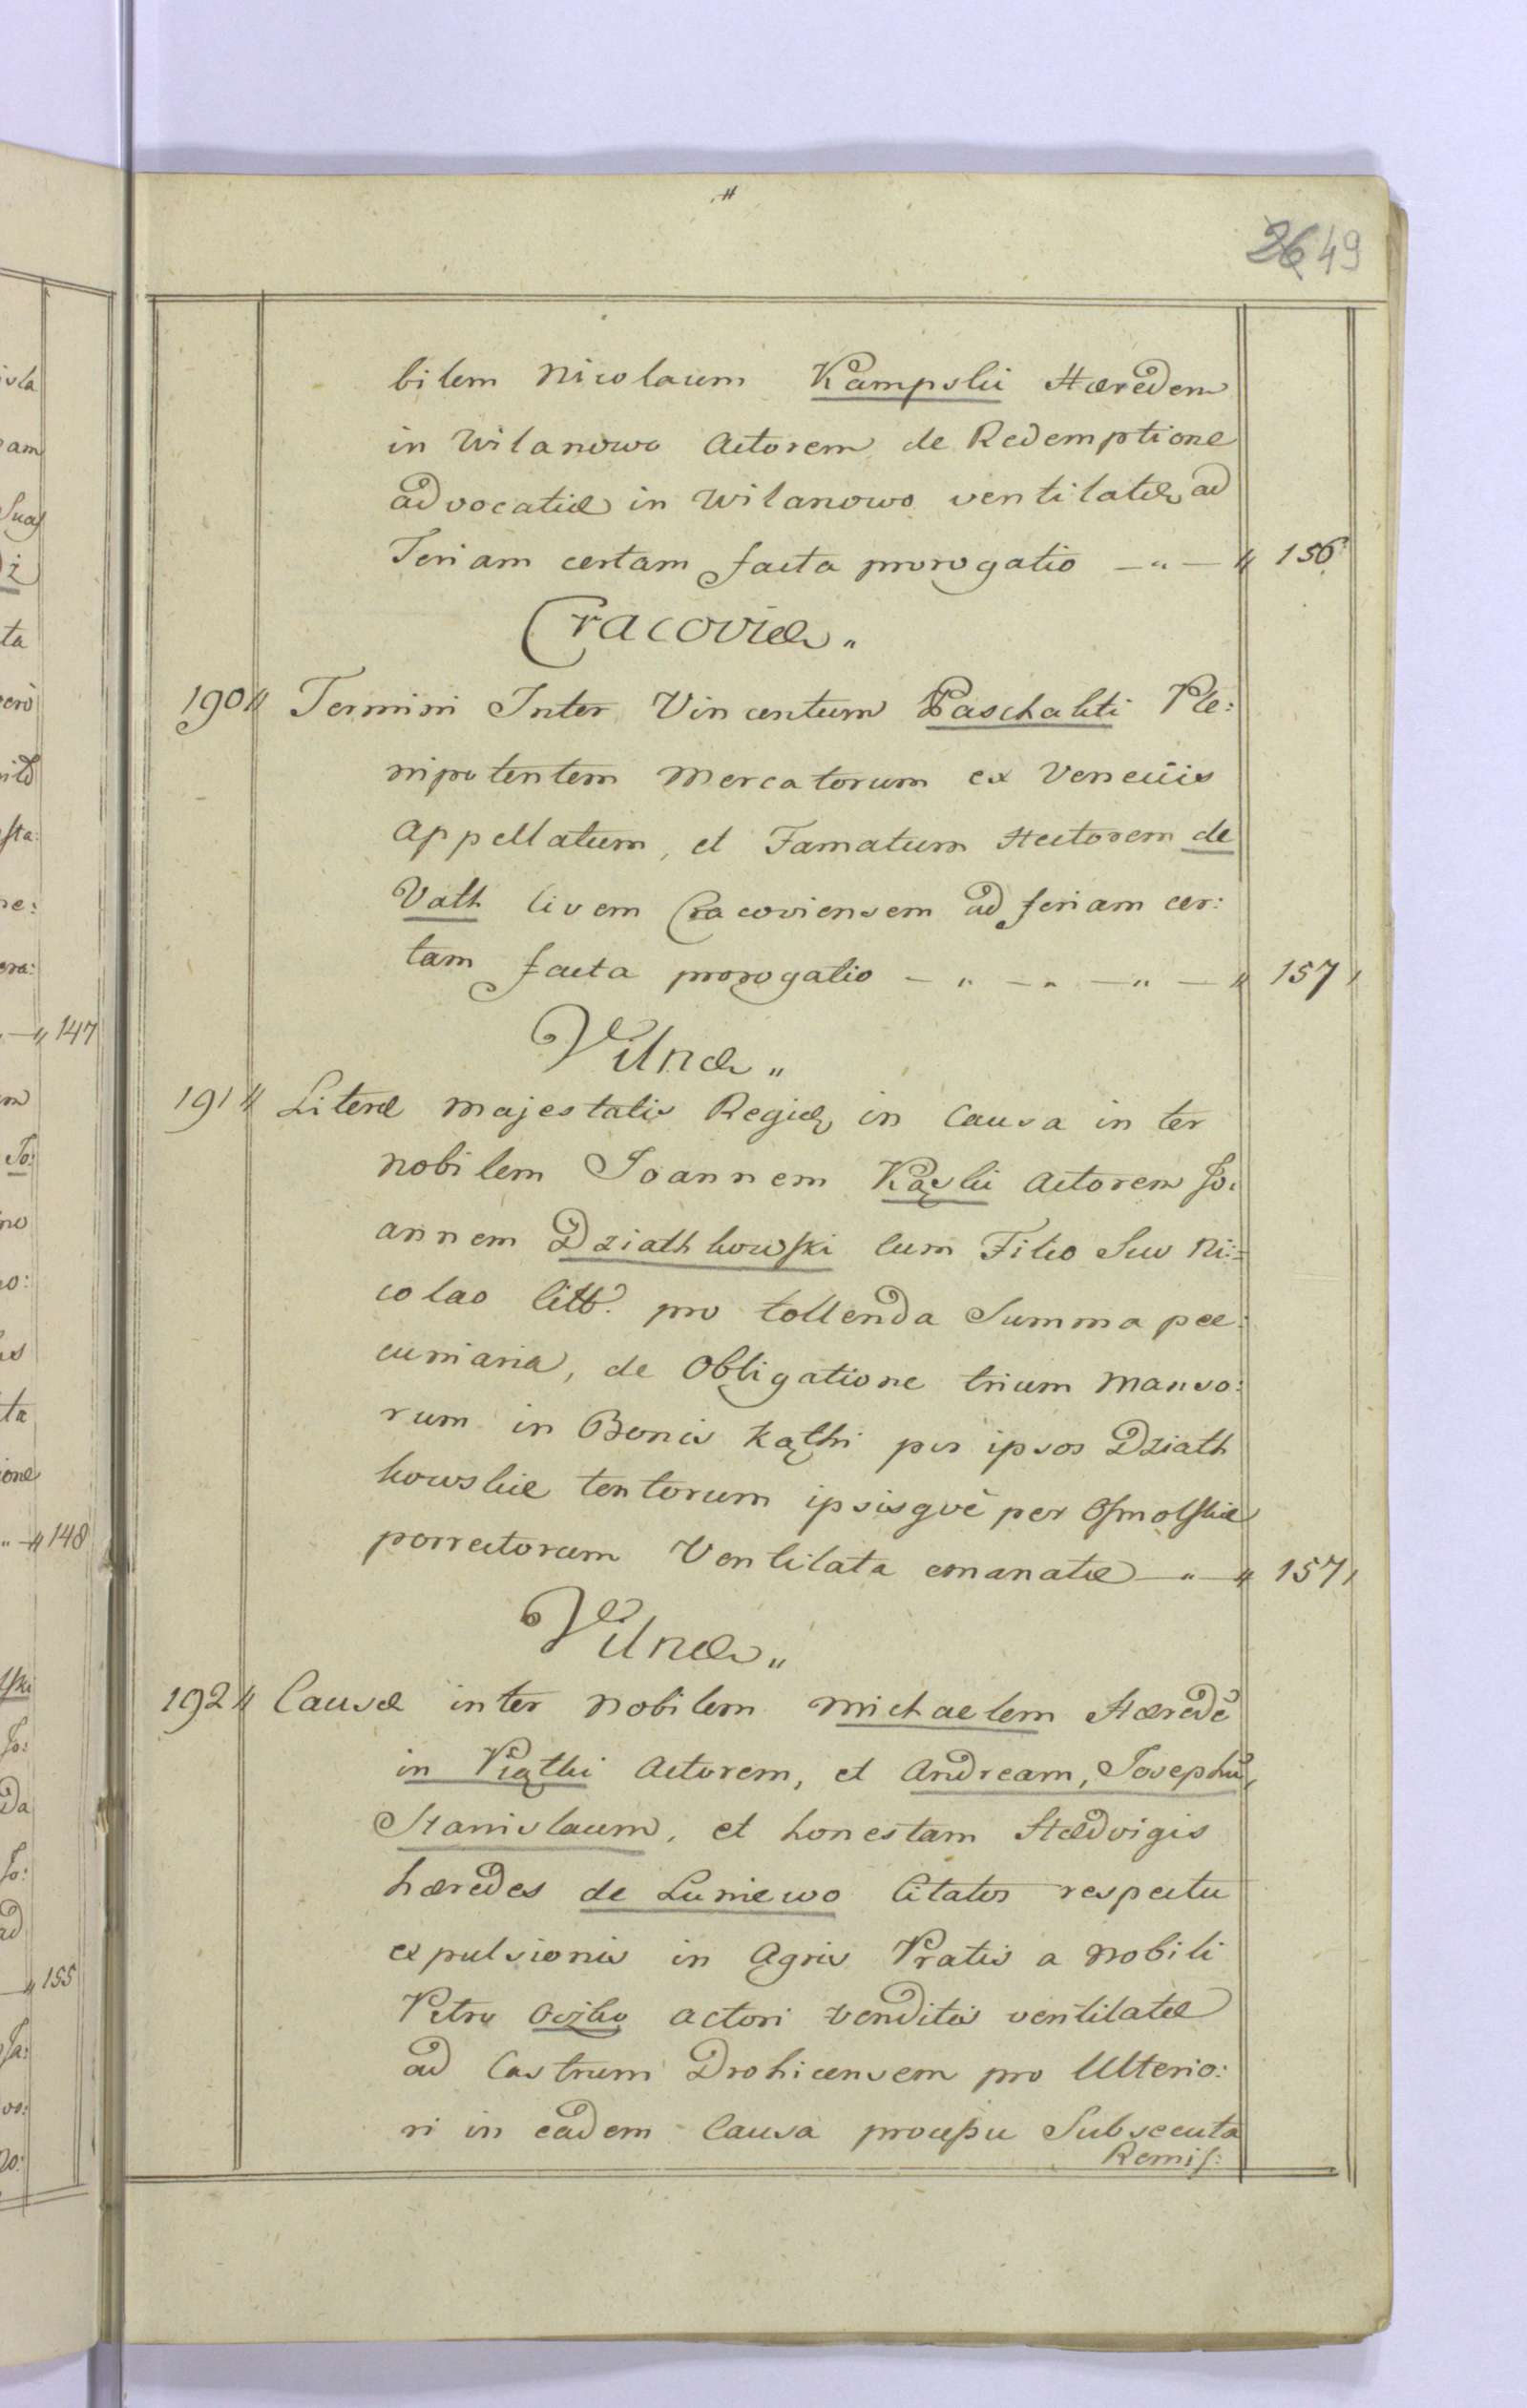 26 49
bilem Nicolaum Kampski Hæredem
in Wilanowo Actorem de Redemptione
advocatiæ in Wilanowo ventilatæ ad
Feriam certam facta prorogatio — " — " 156
Cracoviæ "
190 " Termini Inter Vincentum Paschaliti Ple:
nipotentem Mercatorum ex Veneciis
Appellatum, et Famatum Hectorem de
Vath Civem Cracoviensem ad feriam cer:
tam facta prorogatio — " — " — " — " 157
Vilnæ "
191 " Literæ Majestatis Regiæ in Causa inter
Nobilem Joannem Kąski Actorem Jo:
annem Dziathkowski cum Filio Suo Ni:
colao Citt. pro tollenda Summa pec:
cuniaria, de Obligatione trium Manso:
rum in Bonis Kąthi per ipsos Dziath
kowskie tentorum ipsisque per Osmolskie
porrectorum Ventilata emanatæ — " — " 157
Vilnæ "
192 " Causæ inter Nobilem Michaelem Hærede
in Piąthi Actorem, et Andream, Josephū,
Stanislaum, et honestam Hædvigis
hæredes de Luniewo Citatos respectu
expulsionis in Agris Pratis a Nobili
Petro Actori venditis ventilatæ
ad Castrum Drohicensem pro Ulterio:
ri in eadem Causa processu Subsecuta
Remis:
147
148
155